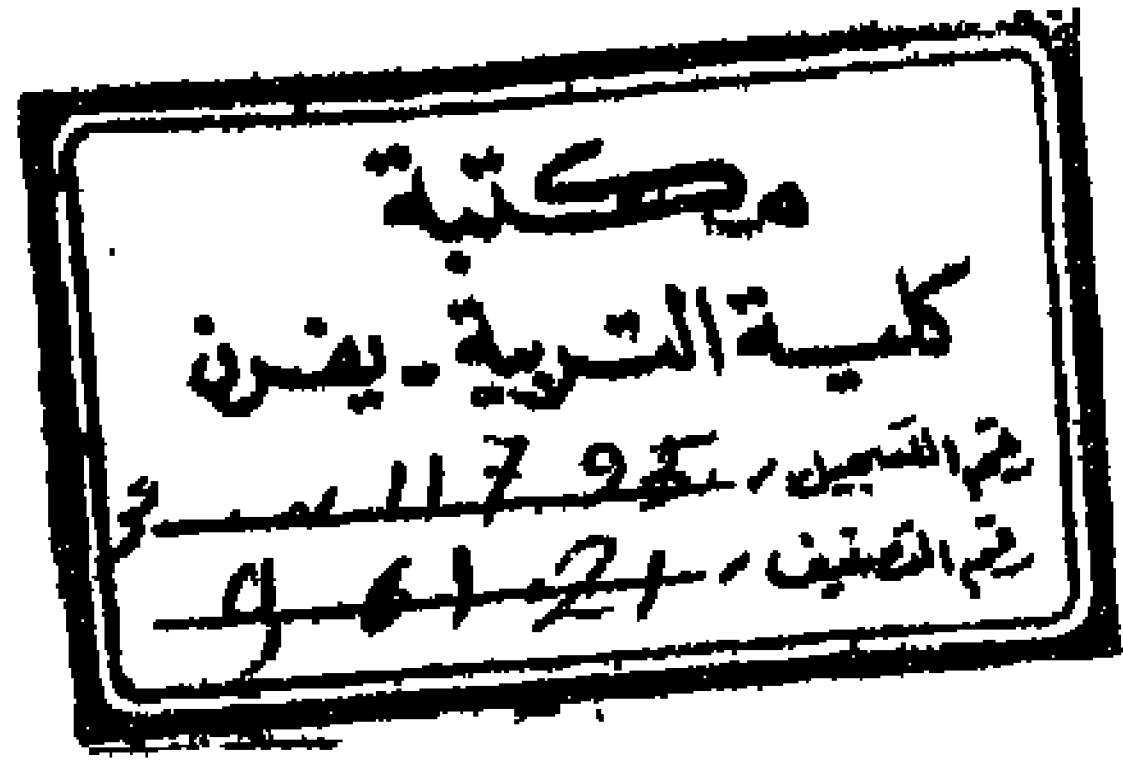 مكتبة
كلية التربية - يفرن
رقم التسجيل، 11795
رقم التصنيف، 961.21